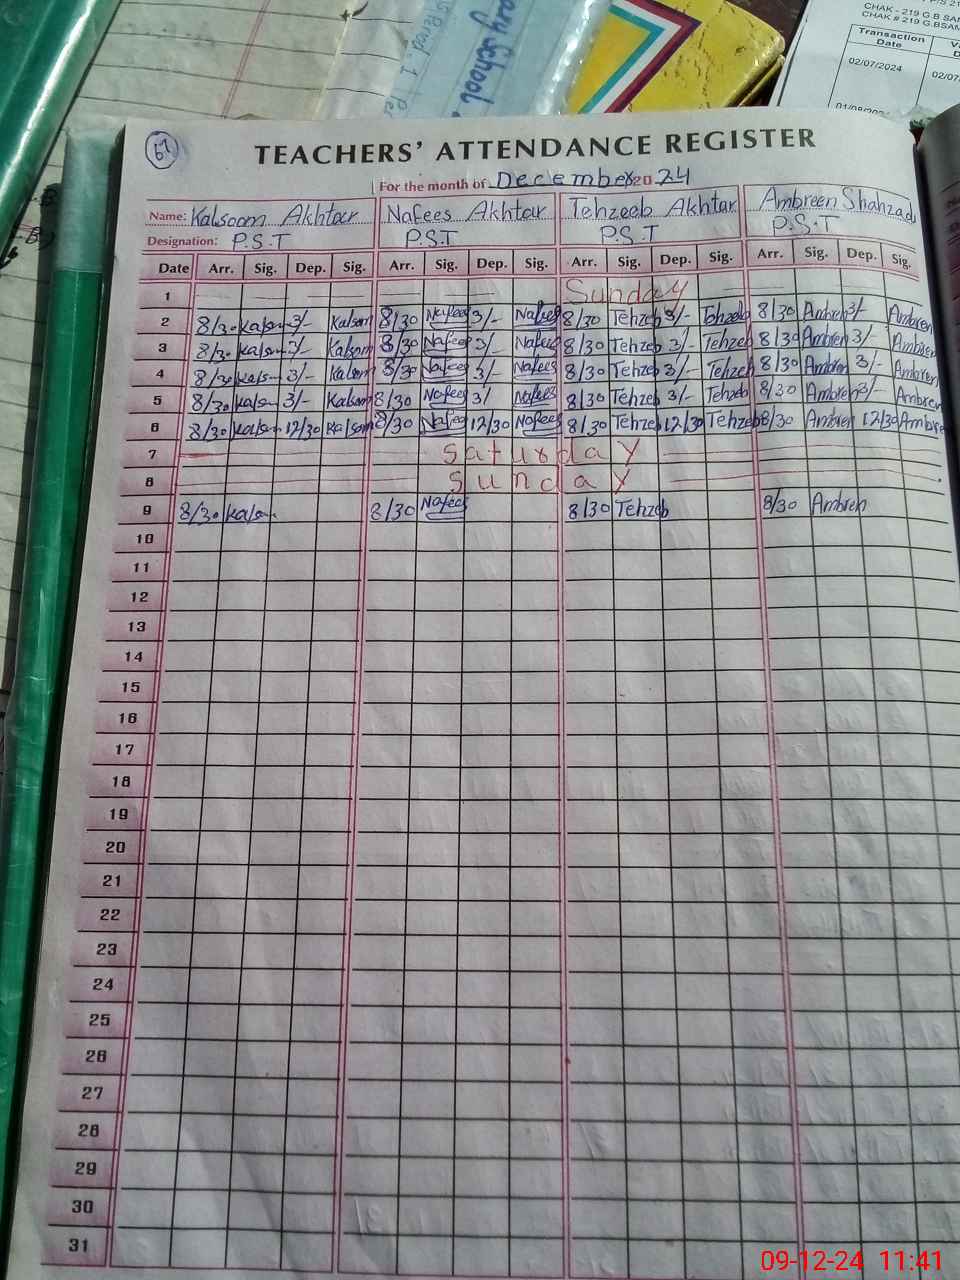 CHAK - 219 G.B SAN
CHAK # 219 G.BSAM
Transaction Date
02/07/2024 02/07/
School
67
TEACHERS' ATTENDANCE REGISTER
For the month of December 2024
Name: Kalsoom Akhtar Nafees Akhtar Tehzeeb Akhtar Ambreen Shahzad
Designation: P.S.T P.S.T P.S.T P.S.T
Date Arr. Sig. Dep. Sig. Arr. Sig. Dep. Sig. Arr. Sig. Dep. Sig. Arr. Sig. Dep. Sig.
1 Sunday
2 8/30 Kalsom 3/- Kalsom 8/30 Nafees 3/- Nafees 8/30 Tehzeb 3/- Tehzeb 8/30 Ambren 3/- Ambren
3 8/30 Kalsom 3/- Kalsom 8/30 Nafees 3/- Nafees 8/30 Tehzeb 3/- Tehzeb 8/30 Ambren 3/- Ambren
4 8/30 Kalsom 3/- Kalsom 8/30 Nafees 3/- Nafees 8/30 Tehzeb 3/- Tehzeb 8/30 Ambren 3/- Ambren
5 8/30 Kalsom 3/- Kalsom 8/30 Nafees 3/ Nafees 8/30 Tehzeb 3/- Tehzeb 8/30 Ambren 3/- Ambren
6 8/30 Kalsom 12/30 Kalsom 8/30 Nafees 12/30 Nafees 8/30 Tehzeb 12/30 Tehzeb 8/30 Ambren 12/30 Ambre
7 Saturday
8 Sunday
9 8/30 Kalsom 8/30 Nafees 8/30 Tehzeb 8/30 Ambren
10
11
12
13
14
15
16
17
18
19
20
21
22
23
24
25
26
27
28
29
30
31
09-12-24 11:41